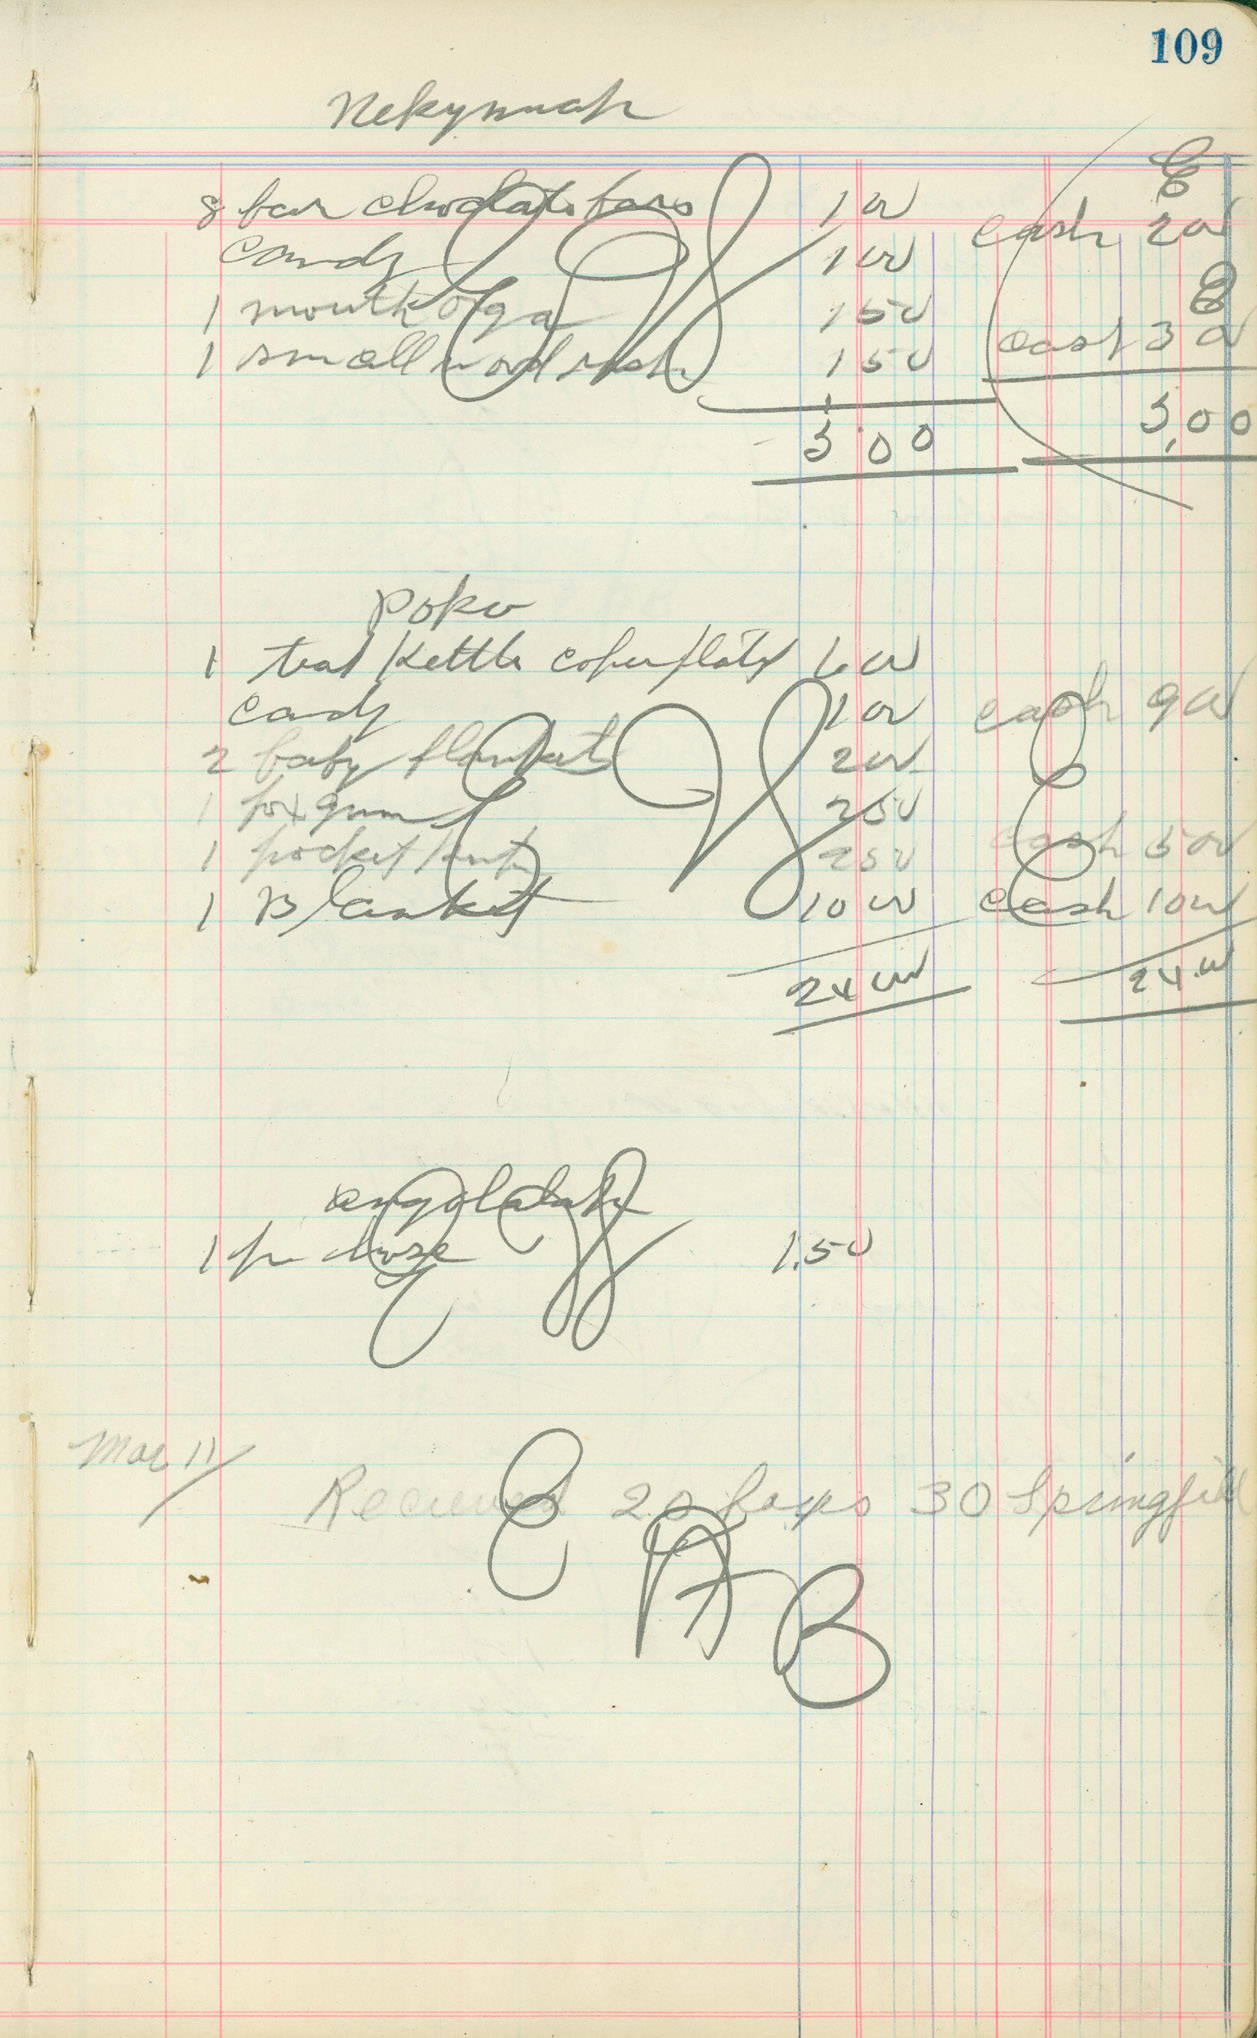 109
Nekynnah
8 bar choclate bars 1 00
candy 1 00 cash 2 00
1 mouth orga 1 50 E
1 small wood 1 50 cash 3 00
5 00 5,00
Poko
1 teat Kettle coperplated 6 00
cady 1 00 cash 9 00
2 baby blankets 2 00
1 box gum 2 50
1 pocket knife 2 50 cash 5 00
1 Blanket 10 00 cash 10 00
24 00 24.00
angolalak
1 pr hose 1.50
Mar 11
Recieved 20 boxes 30 Springfild
E A B